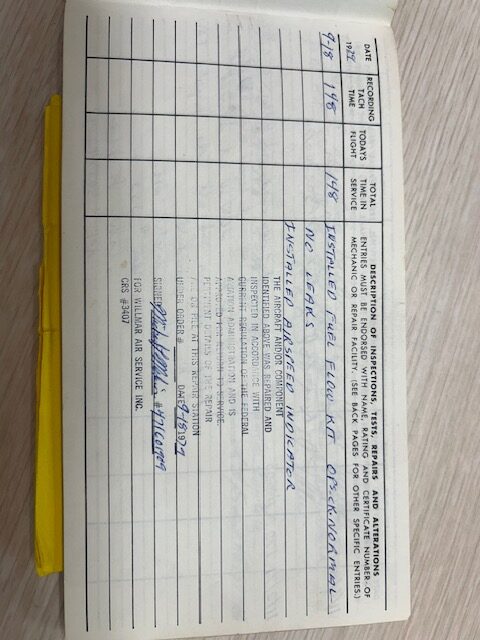 DATE
1979
RECORDING
TACH
TIME
TODAYS
FLIGHT
TOTAL
TIME IN
SERVICE
DESCRIPTION OF INSPECTIONS, TESTS, REPAIRS AND ALTERATIONS
ENTRIES MUST BE ENDORSED WITH NAME, RATING AND CERTIFICATE NUMBER OF
MECHANIC OR REPAIR FACILITY. (SEE BACK PAGES FOR OTHER SPECIFIC ENTRIES.)
9-18 148 148 INSTALLED FUEL FLOW KIT OPS-CK.NORMAL
NO LEAKS
INSTALLED AIRSPEED INDICATOR
THE AIRCRAFT AND/OR COMPONENT
IDENTIFIED ABOVE WAS REPAIRED AND
INSPECTED IN ACCORDANCE WITH
CURRENT REGULATION OF THE FEDERAL
AVIATION ADMINISTRATION AND IS
APPROVED FOR RETURN TO SERVICE.
PERTINENT DETAILS OF THE REPAIR
ARE ON FILE AT THIS REPAIR STATION
UNDER ORDER # DATE 9-18 1979
SIGNED
FOR WILLMAR AIR SERVICE INC.
CRS #3407